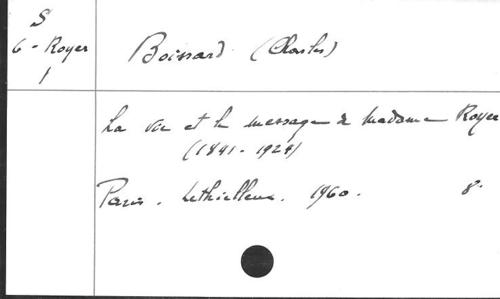 S
6 - Royer
1
Boissard (Charles)
La vie et le message de Madame Royer
(1841-1924)
Paris. Lethielleux. 1960. 8°